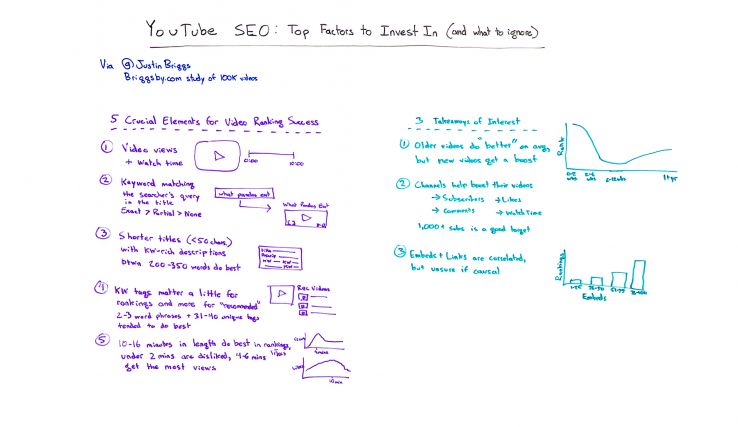 YouTube SEO: Top Factors to Invest In (and what to ignore)
Via @Justin Briggs
Briggsby.com study of 100K videos
5 Crucial Elements for Video Ranking Success
1 Video views
+ Watch time
0:00 10:00
2 Keyword matching
the searcher's query
in the title
Exact > Partial > None
what pandas eat
What Pandas Eat
3 Shorter titles (<50 chars)
with KW-rich descriptions
btwn 200-350 words do best
4 KW tags matter a little for
rankings and more for "recommended"
2-3 word phrases + 31-40 unique tags
tended to do best
Rec Videos
5 10-16 minutes in length do best in rankings,
under 2 mins are disliked, 4-6 mins
get the most views
10min
3 Takeaways of Interest
1 Older videos do "better" on avg,
but new videos get a boost
Rank
2 Channels help boost their videos
→ Subscribers → Likes
→ Comments → Watch Time
1,000+ subs is a good target
3 Embeds + Links are correlated,
but unsure if causal
Rankings
Embeds